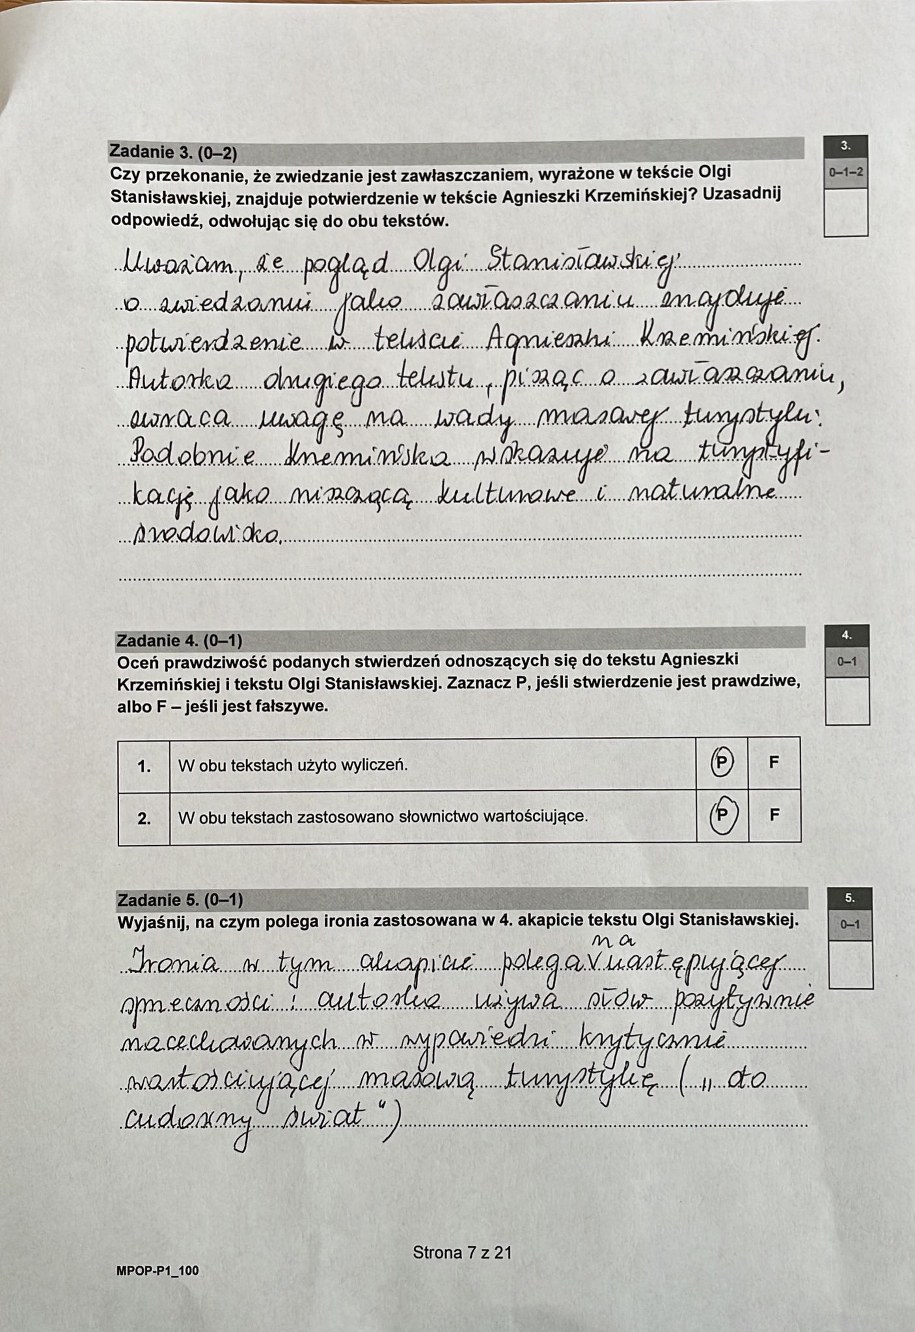 Zadanie 3. (0–2)
3.
0–1–2
Czy przekonanie, że zwiedzanie jest zawłaszczaniem, wyrażone w tekście Olgi
Stanisławskiej, znajduje potwierdzenie w tekście Agnieszki Krzemińskiej? Uzasadnij
odpowiedź, odwołując się do obu tekstów.
Uważam, że pogląd Olgi Stanisławskiej
o zwiedzaniu jako zawłaszczaniu znajduje
potwierdzenie w tekście Agnieszki Krzemińskiej.
Autorka drugiego tekstu, pisząc o zawłaszczaniu,
zwraca uwagę na wady masowej turystyki.
Podobnie Krzemińska wskazuje na turystyfi-
kację jako niszczącą kulturowe i naturalne
środowisko.
Zadanie 4. (0–1)
4.
0–1
Oceń prawdziwość podanych stwierdzeń odnoszących się do tekstu Agnieszki
Krzemińskiej i tekstu Olgi Stanisławskiej. Zaznacz P, jeśli stwierdzenie jest prawdziwe,
albo F – jeśli jest fałszywe.
1. W obu tekstach użyto wyliczeń. P F
2. W obu tekstach zastosowano słownictwo wartościujące. P F
Zadanie 5. (0–1)
5.
0–1
Wyjaśnij, na czym polega ironia zastosowana w 4. akapicie tekstu Olgi Stanisławskiej.
na
Ironia w tym akapicie polega następującej
sprzeczności: autorka używa słów pozytywnie
nacechowanych w wypowiedzi krytycznie
wartościującej masową turystykę („do
cudowny świat")
Strona 7 z 21
MPOP-P1_100